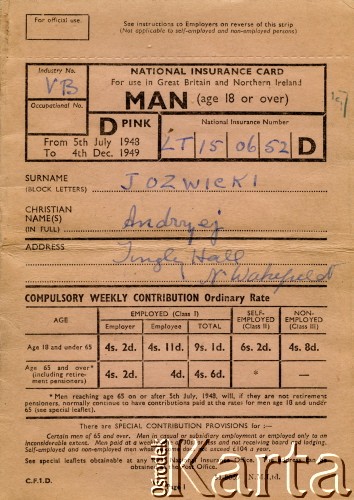 For official use.
See instructions to Employers on reverse of this strip
(Not applicable to self-employed and non-employed persons)
Industry No.
VB
Occupational No.
NATIONAL INSURANCE CARD
For use in Great Britain and Northern Ireland
MAN (age 18 or over)
D PINK
From 5th July 1948
To 4th Dec. 1949
National Insurance Number
LT 15 06 52 D
SURNAME
(BLOCK LETTERS)
JOZWICKI
CHRISTIAN
NAME(S)
(IN FULL)
Andrzej
ADDRESS
Tingly Hall
Nr Wakefield
COMPULSORY WEEKLY CONTRIBUTION Ordinary Rate
AGE
EMPLOYED (Class I)
SELF-EMPLOYED (Class II)
NON-EMPLOYED (Class III)
Employee Employer TOTAL
Age 18 and under 65 4s. 2d. 4s. 11d. 9s. 1d. 6s. 2d. 4s. 8d.
Age 65 and over* (including retirement pensioners) 4s. 2d. 4d. 4s. 6d. * —
* Men reaching age 65 on or after 5th July, 1948, will, if they are not retirement
pensioners, normally continue to have contributions paid at the rates for men age 18 and under
65 (see special leaflet).
There are SPECIAL CONTRIBUTION PROVISIONS for :—
Certain men of 65 and over. Men in casual or subsidiary employment or employed only to an
inconsiderable extent.
Self-employed and non-employed men
£104 a year.
See special leaflets obtainable at any
National Insurance Office.
obtained at the Post Office.
C.F.I D.
Page 1
Ośrodek
Karta